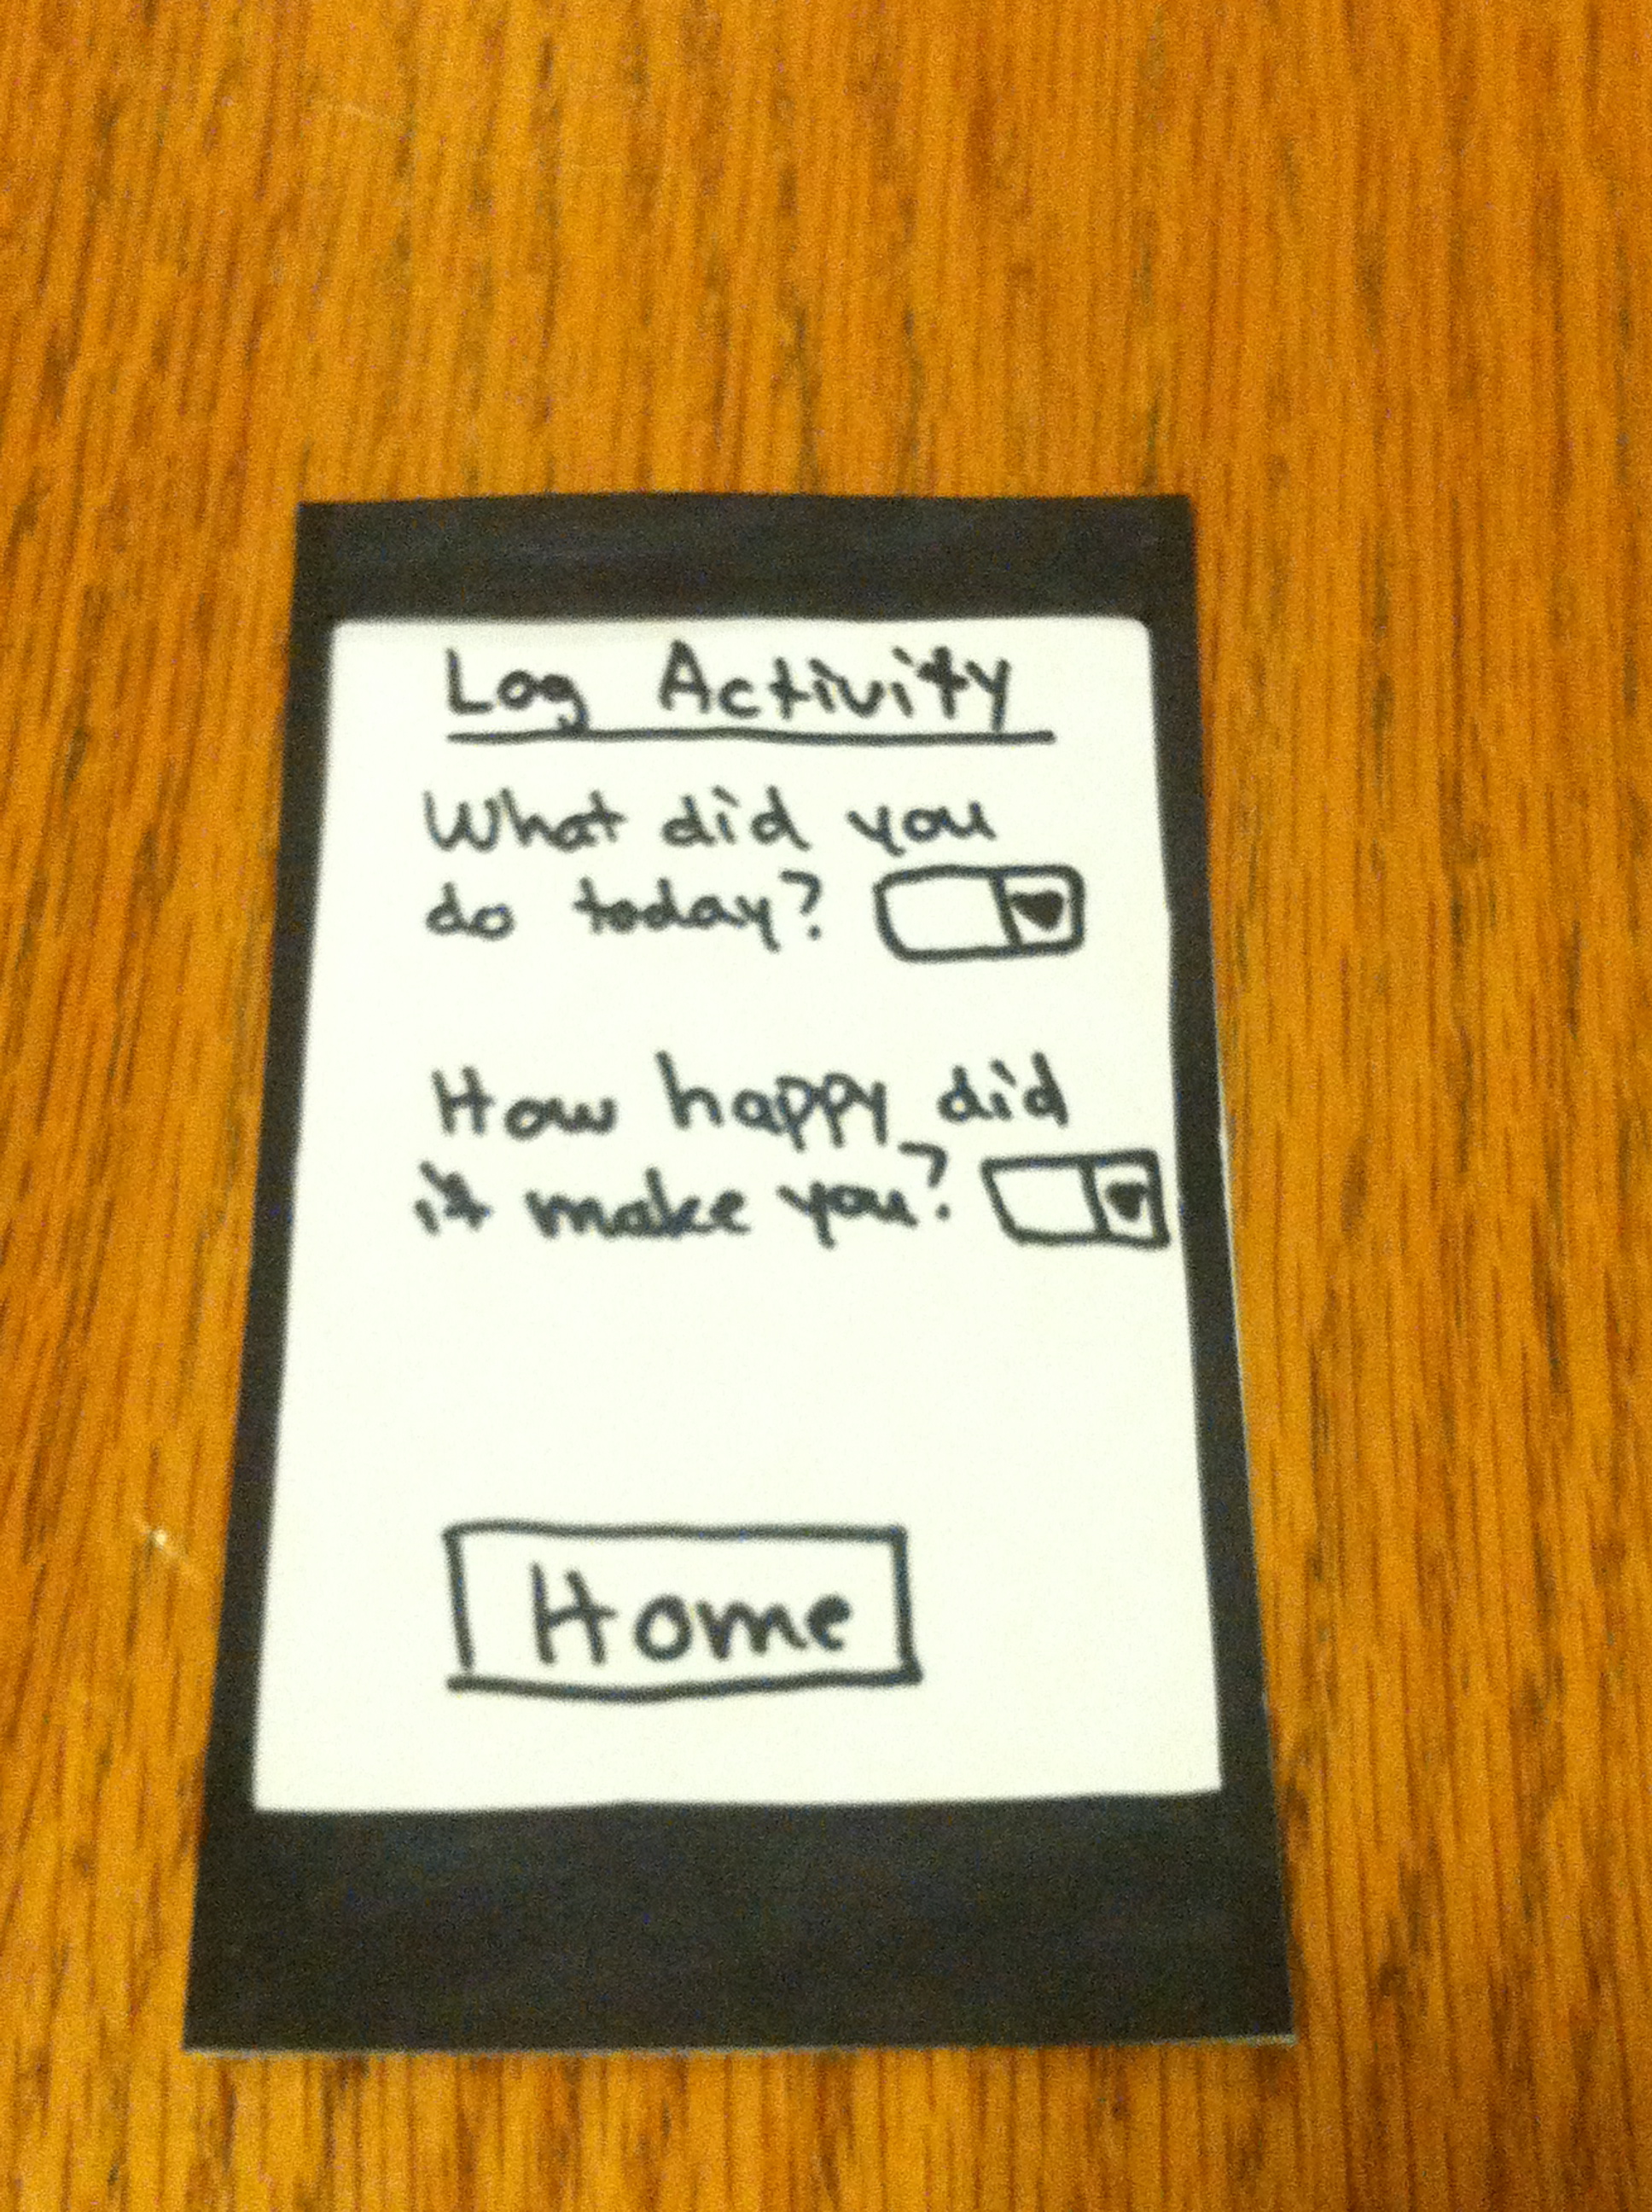 Log Activity
What did you
do today?
How happy did
it make you?
Home